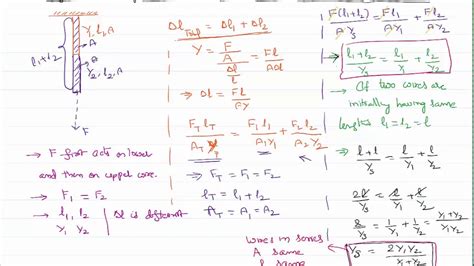 Y₁ l₁ A
A
l₁+l₂
A
Y₂, l₂, A
F
→ F first acts on lower
and then on upper wire.
→ F₁ = F₂
→ l₁, l₂ | Δl is different
Y₁ Y₂
Δl_Total = Δl₁ + Δl₂
Y = F/A / Δl/l = Fl/AΔl
⇒ Δl = Fl/AY
F_T l_T / A_T Y_s = F₁ l₁ / A₁ Y₁ + F₂ l₂ / A₂ Y₂
l_T = l₁ + l₂
A_T = A₁ = A₂
wires in series
A same
l same
F(l₁+l₂)/AYs = F l₁/AY₁ + F l₂/AY₂
⇒ l₁+l₂/Ys = l₁/Y₁ + l₂/Y₂
→ If two wires are
initially having same
lengths l₁ = l₂ = l
⇒ l+l/Ys = l/Y₁ + l/Y₂
⇒ 2l/Ys = l/Y₁ + l/Y₂
⇒ 2/Ys = 1/Y₁ + 1/Y₂ = Y₂+Y₁/Y₁Y₂
Ys = 2Y₁Y₂/Y₁+Y₂